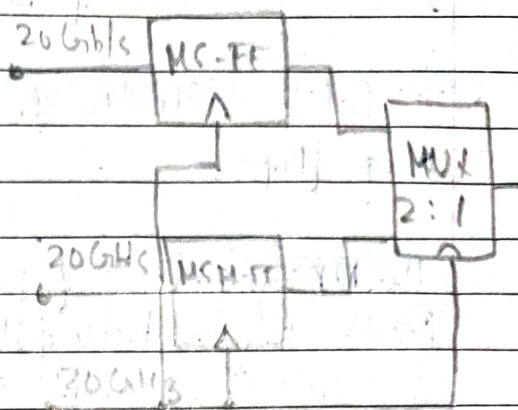 20 Gb/s
MS-FF
MUX
2:1
20 Gb/s
MSM-FF
20 GHz